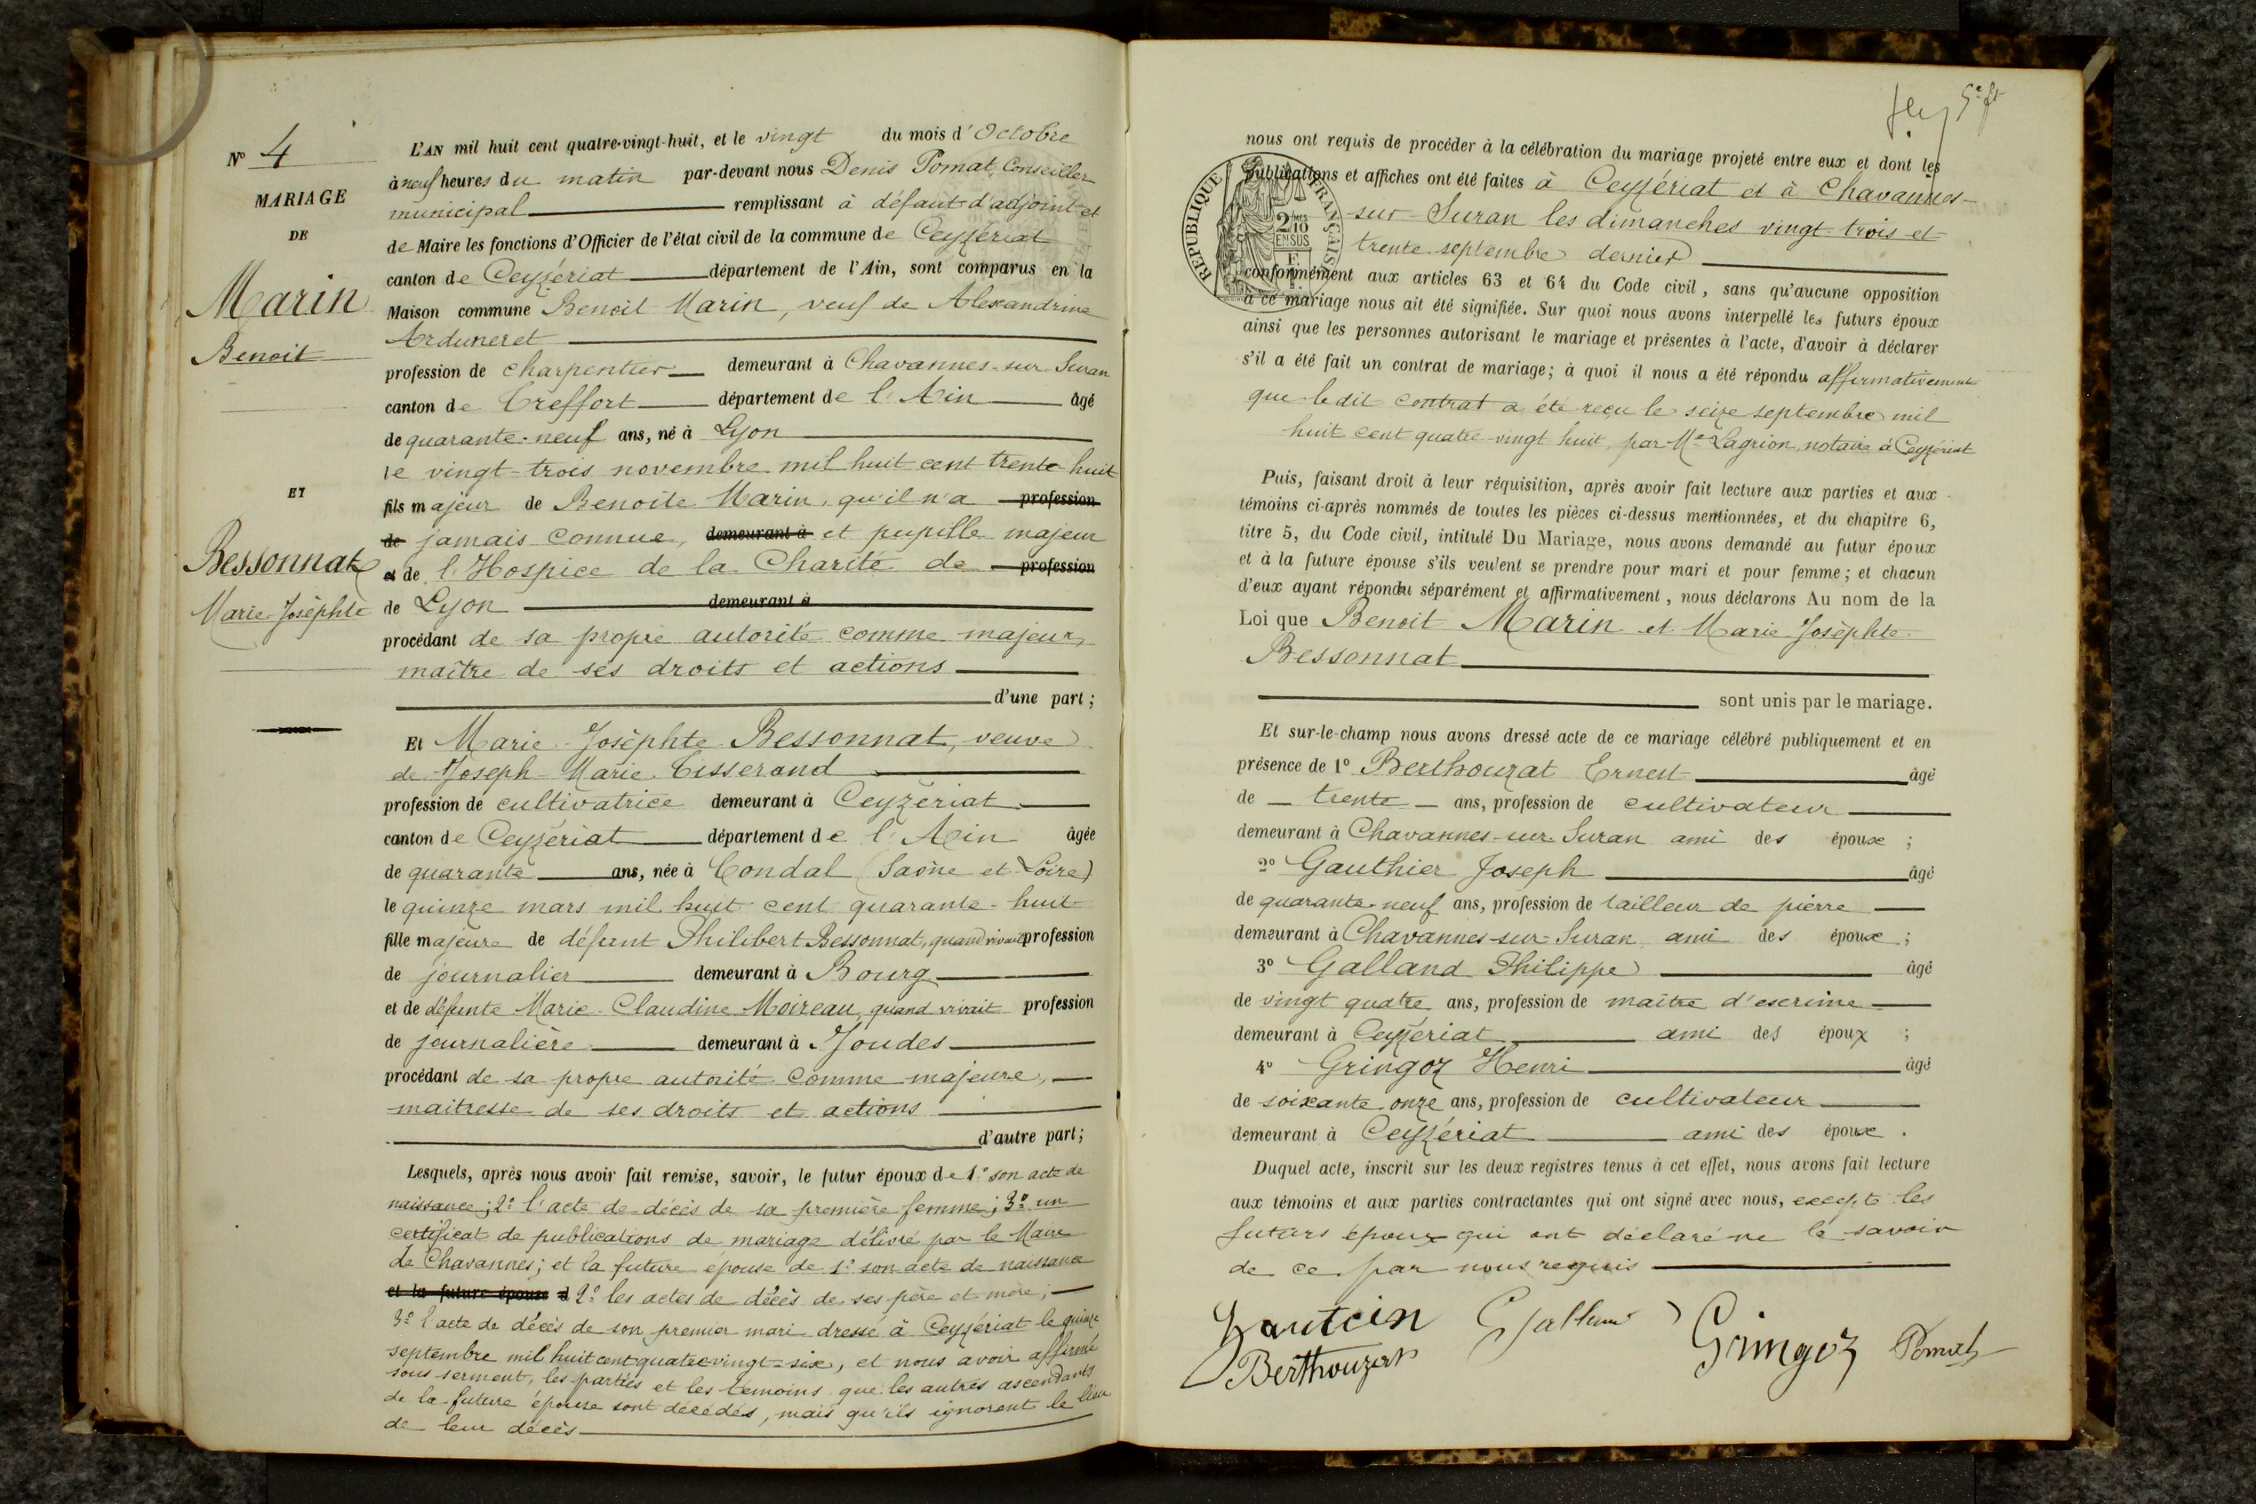 N° 4
MARIAGE
DE
Marin
Benoit
ET
Bessonnat
Marie-Josèphte
L'AN mil huit cent quatre-vingt-huit, et le vingt du mois d'Octobre
à neuf heures du matin par-devant nous Denis Pomat, Conseiller
municipal remplissant à défaut d'adjoint et
de Maire les fonctions d'Officier de l'état civil de la commune de Ceyzériat
canton de Ceyzériat département de l'Ain, sont comparus en la
Maison commune Benoit Marin, veuf de Alexandrine
Arduneret
profession de charpentier demeurant à Chavannes-sur-Suran
canton de Treffort département de l'Ain âgé
de quarante-neuf ans, né à Lyon
le vingt-trois novembre mil huit cent trente huit
fils majeur de Benoite Marin, qu'il n'a profession
de jamais connue, demeurant à et pupille majeur
et de l'Hospice de la Charité de profession
de Lyon demeurant à
procédant de sa propre autorité comme majeur,
maître de ses droits et actions
d'une part;
Et Marie-Josèphte Bessonnat, veuve
de Joseph-Marie Tisserand
profession de cultivatrice demeurant à Ceyzériat
canton de Ceyzériat département de l'Ain âgée
de quarante ans, née à Condal (Saône et Loire)
le quinze mars mil huit cent quarante-huit
fille majeure de défunt Philibert Bessonnat, quand vivait profession
de journalier demeurant à Bourg
et de défunte Marie-Claudine Moireau, quand vivait profession
de journalière demeurant à Joudes
procédant de sa propre autorité comme majeure,
maitresse de ses droits et actions
d'autre part;
Lesquels, après nous avoir fait remise, savoir, le futur époux de 1° son acte de
naissance; 2° l'acte de décès de sa première femme; 3° un
certificat de publications de mariage délivré par le Maire
de Chavannes; et la future épouse de 1° son acte de naissance
et la future épouse d 2° les actes de décès de ses père et mère;
3° l'acte de décès de son premier mari dressé à Ceyzériat le quinze
septembre mil huit cent quatre-vingt-six, et nous avoir affirmé
sous serment, les parties et les témoins que les autres ascendants
de la future épouse sont décédés, mais qu'ils ignorent le lieu
de leur décès
5e ft
RÉPUBLIQUE FRANÇAISE
2/10
EN SUS
nous ont requis de procéder à la célébration du mariage projeté entre eux et dont les
publications et affiches ont été faites à Ceyzériat et à Chavannes-
sur-Suran les dimanches vingt-trois et
trente septembre dernier
conformément aux articles 63 et 64 du Code civil, sans qu'aucune opposition
à ce mariage nous ait été signifiée. Sur quoi nous avons interpellé les futurs époux
ainsi que les personnes autorisant le mariage et présentes à l'acte, d'avoir à déclarer
s'il a été fait un contrat de mariage; à quoi il nous a été répondu affirmativement
que ledit contrat a été reçu le seize septembre mil
huit cent quatre-vingt huit par Me Lagrion, notaire à Ceyzériat
Puis, faisant droit à leur réquisition, après avoir fait lecture aux parties et aux
témoins ci-après nommés de toutes les pièces ci-dessus mentionnées, et du chapitre 6,
titre 5, du Code civil, intitulé Du Mariage, nous avons demandé au futur époux
et à la future épouse s'ils veulent se prendre pour mari et pour femme; et chacun
d'eux ayant répondu séparément et affirmativement, nous déclarons Au nom de la
Loi que Benoit Marin et Marie-Josèphte
Bessonnat
sont unis par le mariage.
Et sur-le-champ nous avons dressé acte de ce mariage célébré publiquement et en
présence de 1° Berthouzat Ernest âgé
de trente ans, profession de cultivateur
demeurant à Chavannes-sur-Suran ami des époux ;
2° Gauthier Joseph âgé
de quarante-neuf ans, profession de tailleur de pierre
demeurant à Chavannes-sur-Suran ami des époux ;
3° Galland Philippe âgé
de vingt quatre ans, profession de maître d'escrime
demeurant à Ceyzériat ami des époux ;
4° Gringoz Henri âgé
de soixante onze ans, profession de cultivateur
demeurant à Ceyzériat ami des époux .
Duquel acte, inscrit sur les deux registres tenus à cet effet, nous avons fait lecture
aux témoins et aux parties contractantes qui ont signé avec nous, excepté les
futurs époux qui ont déclaré ne le savoir
de ce par nous requis
Galland
Gringoz
Pomat
Berthouzat